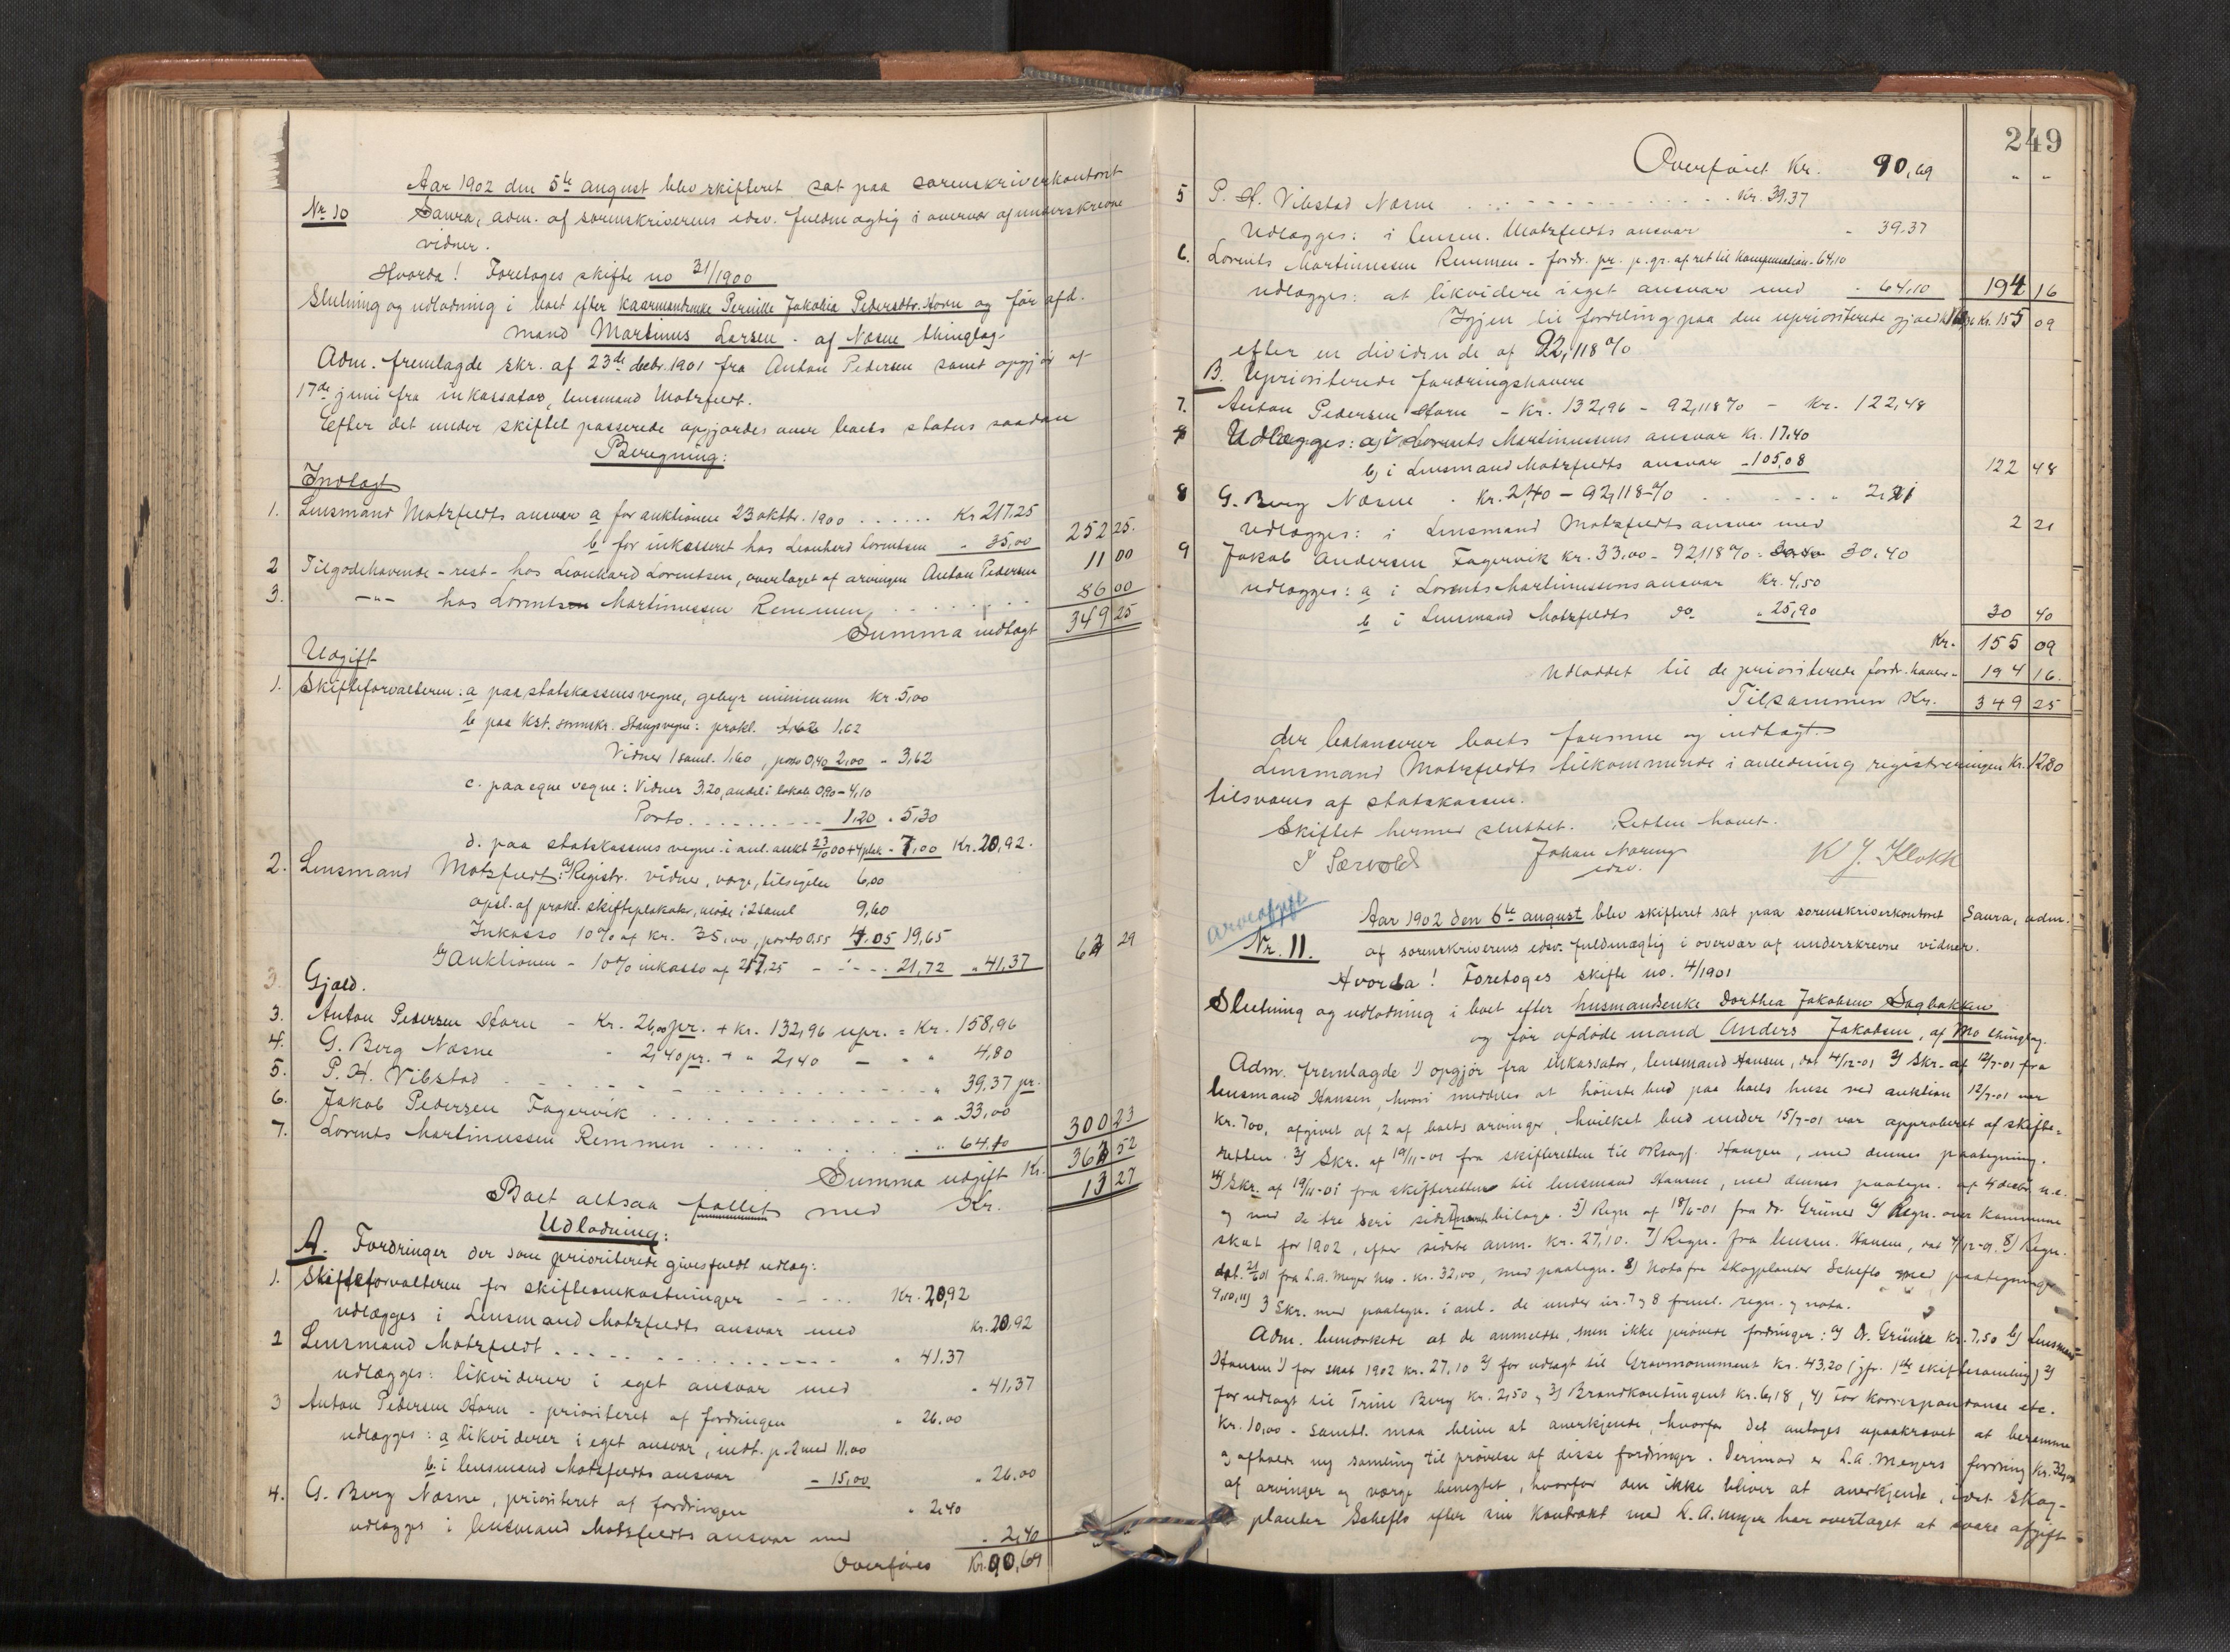 Aar 1902 den 5te august blev skifteret sat paa sorenskriverkontoret
Nr. 10 Saura, adm. af sorenskriverens edsv. fuldmægtig i overvær af underskrevne
vidner.
Hvorda! Foretoges skifte no 31/1900
Slutning og udlodning i boet efter kaarmandenke Pernille Jakobia Pedersdtr. Horn og før afd.
mand Martinus Larsen. af Næsne thinglag.
Adm. fremlagde skr. af 23de decbr. 1901 fra Anton Pedersen samt opgjør af
17de juni fra inkassator, lensmand Motzfeldt.
Efter det under skiftet passerede opgjordes over boets status saadan
Beregning:
Indtægt
1. Lensmand Motzfeldts ansvar a for auktionen 23 oktbr. 1900 ...... Kr 217,25
b for inkasseret hos Leonhard Lorentsen " 35,00 252 25.
2 Tilgodehavende - rest - hos Leonhard Lorentsen, overtaget af arvingen Anton Pedersen 11 00
3. -"- hos Lorents Martinussen Remmen, ........ 86 00
Summa indtægt 349 25
Udgift
1. Skifteforvalteren: a paa statskassens vegne, gebyr minimum kr. 5,00
b paa kst. sorenskr. Stangs vegne: prokl. 1,62
Vidner 1 saml. 1,60, porto 0,40 2,00 - 3,62
c. paa egne vegne: Vidner 3,20, andel i lokale 0,90 - 4,10
Porto .......... 1,20 " 5,30
d. paa statskassens vegne i anl. aukt 23/10 00 + 4 plak. - 7,00 Kr. 20,92.
2. Lensmand Motzfeldt: a) Registr. vidner, værge, tilsigelse 6,00
opsl. af prokl. skifteplakater, møde i 2 saml 9,60
Inkasso 10% af kr. 35,00, porto 0,55 4,05 19,65
b) Auktionen - 10% inkasso af 217,25 - " - .. 21,72 " 41,37 62 29
3. Gjæld.
3. Anton Pedersen Horn - Kr. 26,00 pr. + kr. 132,96 upr. = Kr. 158,96
4. G. Berg Næsne " 2,40 pr. + " 2,40 - " " 4,80
5. P. H. Vibstad ........ " 39,37 pr.
6. Jakob Pedersen Fagervik ........ " 33,00
7. Lorents Martinussen Remmen ........ " 64,10 300 23
Summa udgift Kr. 362 52
Boet altsaa fallit med Kr. 13 27
Udlodning:
A. Fordringer der som prioriterede gives fuldt udlæg:
1. Skifteforvalteren for skifteomkostninger - - ... Kr. 20,92
udlægges i Lensmand Motzfeldts ansvar med Kr. 20,92
2 Lensmand Motzfeldt .......... " 41,37
udlægges: likviderer i eget ansvar med " 41,37
3 Anton Pedersen Horn - prioriteret af fordringen " 26,00
udlægges: a likviderer i eget ansvar, indt. p. 2 med 11,00
b. i lensmand Motzfeldts ansvar - 15,00 " 26,00
4. G. Berg Næsne, prioriteret af fordringen " 2,40
udlægges i lensmand Motzfeldts ansvar med " 2,40
Overføres Kr. 90,69
249
Overføret Kr. 90,69 " "
5 P. H. Vibstad Næsne ............ Kr. 39,37
Udlægges: i lensm. Motzfeldts ansvar - 39,37
6. Lorents Martinussen Remmen - fordr. pr. p. gr. af ret til kompensation - 64,10
udlægges: at likvidere i eget ansvar med - 64,10 194 16
Igjen til fordeling paa den uprioriterede gjæld Kr. 155 09
efter en dividende af 92,118 %
B. Uprioriterede fordringshavere
7. Anton Pedersen Horn - Kr. 132,96 - 92,118 % - Kr. 122,48
Udlægges: a) i Lorents Martinussens ansvar Kr. 17,40
b) i Lensmand Motzfeldts ansvar - 105,08 122 48
8 G. Berg Næsne . Kr. 2,40 - 92,118 % ...... " 2,21
Udlægges: i Lensmand Motzfeldts ansvar med 2 21
9 Jakob Andersen Fagervik kr. 33,00 - 92,118 % = 30,40
udlægges: a i Lorents Martinussens ansvar Kr. 4,50
b i Lensmand Motzfeldts do " 25,90 30 40
Kr. 155 09
Udloddet til de prioriterede fordr. havere " 194 16.
Tilsammen Kr. 349 25
der balancerer boets formue og indtægt.
Lensmand Motzfeldts tilkommende i anledning registreringen Kr. 12,80
tilsvares af statskassen.
Skiftet hermed sluttet. Retten hævet.
J Særvold Johan Næring K J. Klokk
edsv.
arveafgift
Nr. 11. Aar 1902 den 6te august blev skifteret sat paa sorenskriverkontoret Saura, adm.
af sorenskriverens edsv. fuldmægtig i overvær af underskrevne vidner.
Hvorda! Foretoges skifte no. 4/1901
Slutning og udlodning i boet efter husmandsenke Dorthea Jakobsen Sagbakken
og før afdøde mand Anders Jakobsen, af Mo thinglag.
Adm. fremlagde 1) opgjør fra inkassator, lensmand Hansen, dat 4/12-01 2) Skr. af 12/7-01 fra
lensmand Hansen, hvori meddeles at høieste bud paa boets huse ved auktion 12/7-01 var
kr. 700, afgivet af 2 af boets arvinger, hvilket bud under 15/7-01 var approberet af skifte-
retten. 3) Skr. af 19/11-01 fra skifteretten til oRsagf. Haugen, med dennes paategning.
4) Skr. af 19/11-01 fra skifteretten til lensmand Hansen, med dennes paategn. af 4 decbr n.e.
og med de tre deri sidstnævnte bilage. 5) Regn af 18/6-01 fra dr. Grüner 6) Regn. over kommune
skat for 1902, efter sidste anm. kr. 27,10. 7) Regn. fra lensm. Hansen, dat 4/12-01. 8) Regn.
dat. fra L. A. Meyer Mo. kr. 32,00, med paategn. 8) Nota fra skogplanter Scheflo med paategninger
9,10,11) 3 Skr. med paategn. i anl. de under nr. 7 og 8 freml. regn. og nota.
Adm. bemærkede at de anmeldte, men ikke prøvede fordringer: a) Dr. Grüner kr. 7,50 b) Lensmand
Hansen 1) for skat 1902 kr. 27,10 2) for udlagt til Gravmonument Kr. 43,20 (jfr. 1ste skiftesamling) 2)
for udlagt til Trine Berg kr. 2,50, 3) Brandkontingent kr. 6,18, 4) for korrespondanse etc.
kr. 10,00 - samtl. maa blive at anerkjende, hvorfor det antages upaakrævet at beramme
og afholde ny samling til prøvelse af disse fordringer. Derimod er L.A. Meyers fordring Kr. 32,00
af arvinger og værge benegtet, hvorfor den ikke bliver at anerkjende, idet skog-
planter Scheflo efter sin kontrakt med L. A. Meyer har overtaget at svare afgift